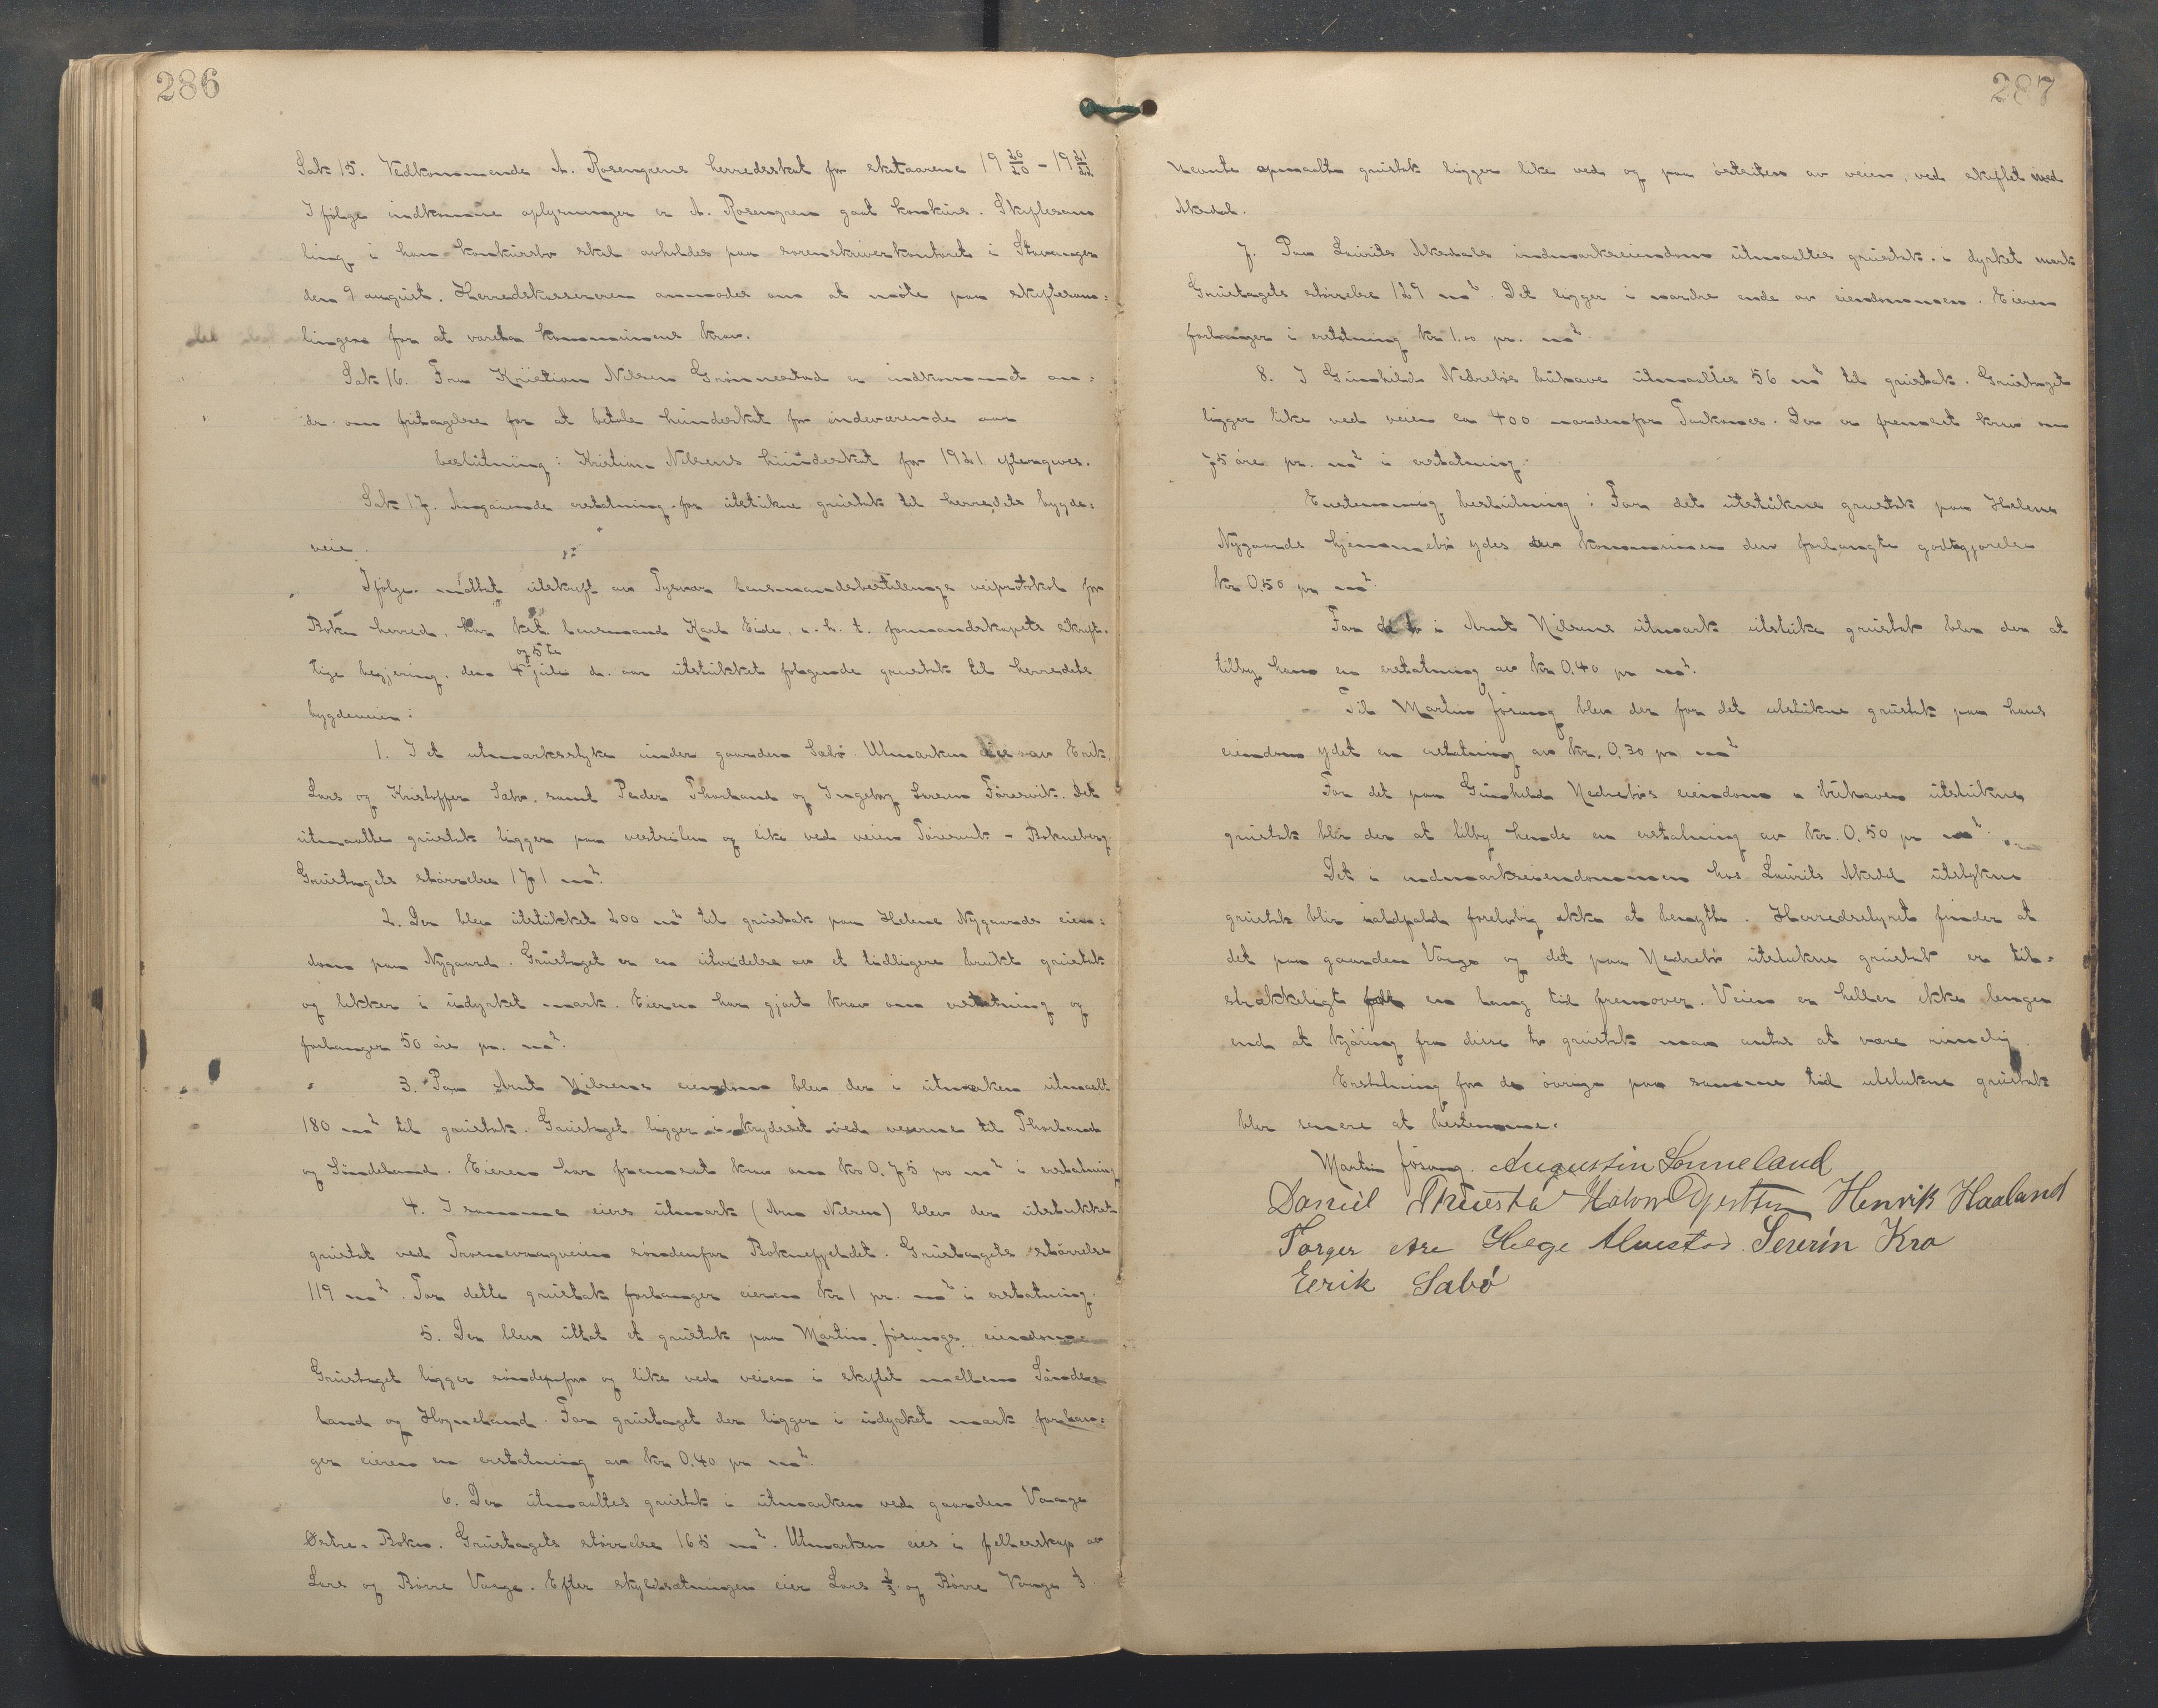 286
Sak 15. Vedkommende A. Rosengrens herredsskat for skataarene 19 20/20 - 19 21/22
Ifølge indkomne oplysninger er A. Rosengren gaat konkurs. Skiftesam
ling i han konkursbo skal avholdes paa sorenskriverkontoret i Stavanger
den 9 august. Herredskassereren anmodes om at møte paa skiftesam=
lingen for at vareta kommunens krav.
Sak 16. Fra Kristian Nilsen Grønnestad er indkommet an=
dr. om fritagelse for at betale hundeskat for indeværende aar
beslutning: Kristian Nilsens hundeskat for 1921 eftergives.
Sak 17. Angaaende erstatning for utstukne grustak til herredets bygde=
veie.
Ifølge mottat utskrift av Tysvær lensmandsbestillings veiprotokol for
Bokn herred, har kst. lensmand Karl Eide, e. h. t. formandskapets skrift=
og 5te
lige begjering, den 4 juli d. aar utstukket følgende grustak til herredets
bygdeveier:
1. I et utmarksstyke under gaarden Sæbø. Utmarken eies av Erik,
Lars og Kristoffer Sæbø, samt Peder Thorland og Ingeborg Larsen Føresvik. Det
utmaalte grustak ligger paa vestsiden og like ved veien Føresvik - Bokneberg
Grustagets størrelse 171 m².
2. Der blev utstukket 200 m² til grustak paa Helene Nygaards eien=
dom paa Nygaard. Grustaget er en utvidelse av et tidligere brukt grustak
og likker i udyrket mark. Eieren har gjort krav om erstatning og
forlanger 50 øre pr. m².
3. Paa Arnt Nilsens eiendom blev der i utmarken utmaalt
180 m² til grustak. Grustaget ligger i krydset ved veierne til Thorland
og Søndeland. Eieren har fremsat krav om kr 0,75 pr m² i erstatning
4. I samme eiers utmark (Arn Nilsen) blev der utstukket
grustat ved søndenfor Boknefjeldet. Grustagets størrelse
119 m². For dette grustak forlanger eieren kr 1 pr. m² i erstatning.
5. Der blev uttat et grustak paa Martin Jøsangs eiendom
Grustaget ligger søndenfor og like ved veien i skiftet mellem Sønde=
land og Høyneland. For grustaget der ligger i udyrket mark forlan=
ger eieren en erstatning av kr 0,40 pr m².
6. Der utmaaltes grustak i utmarken ved gaarden Vaage
Østre-Bokn. Grustagets størrelse 165 m². Utmarken eies i fellesskap av
Lars og Børre Vaage. Efter skyldsætningen eier Lars 2/3 og Børre Vaage 1/3
287
Nevnte opmaalte grustak ligger like ved og paa østsiten av veien, ved skiftet med
Aksdal.
7. Paa Laurits Aksdals indmarkseiendom utmaaltes grustak i dyrket mark
Grustagets størrelse 129 m². Det ligger i nordre ende av eiendommen. Eieren
forlanger i erstatning kr 1.00 pr. m².
8. I Gunhild Nedrebøs buhave utmaaltes 56 m² til grustak. Grustaget
ligger like ved veien ca 400 nordenfor. Der er fremsat krav om
75 øre pr. m² i erstatning.
Enstemmig beslutning: For det utstukne grustak paa Helene
Nygaards hjemmebø ydes kommunen den forlangte godtgjørelse
kr 0,50 pr m².
For det i Arnt Nilsens utmark utstuke grustak blev der at
tilby ham en erstatning av kr 0,40 pr m².
Til Martin Jøsang blev der for det utstukne grustak paa hans
eiendom ydet en erstatning av kr. 0,30 pr m²
For det paa Gunhild Nedrebøs eiendom i buhaven utstukne
grustak blir der at tilby hende en erstatning av kr. 0,50 pr m².
Det i indmarkseiendommen hos Laurits Aksdal utstykne
grustak blir ialdfald foreløbig ikke at benytte. Herredsstyret finder at
det paa gaarden Vaage og det paa Nedrebø utstukne grustak er til=
strækkeligt en lang tid fremover. Veien er heller ikke lengere
end at kjøring fra disse to grustak maa antas at være rimelig.
Erstatning for de øvrige paa samme tid utstukne grustak
blir senere at bestemme.
Martin Jøsang. Augustin Sønneland
Daniel Henrik Haaland
Torger Are Helge Alvestad. Severin Kro
Eerik Sabø